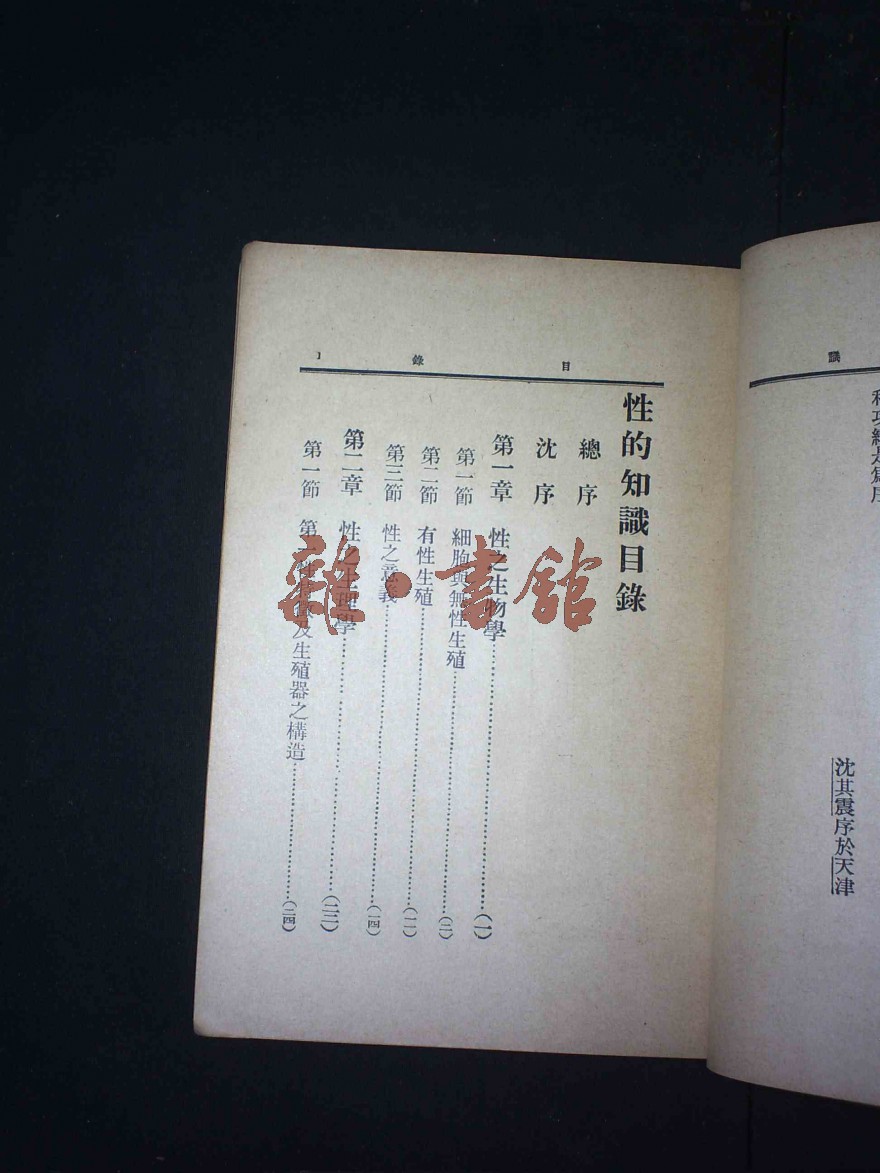 識
沈其震序於天津
目錄 1
性的知識目錄
總序
沈序
第一章 性之生物學……(一)
第一節 細胞與無性生殖……(二)
第二節 有性生殖……(一一)
第三節 性之意義……(一四)
第二章 性之生理學……(二三)
第一節 第 及生殖器之構造……(二四)
雜·書館